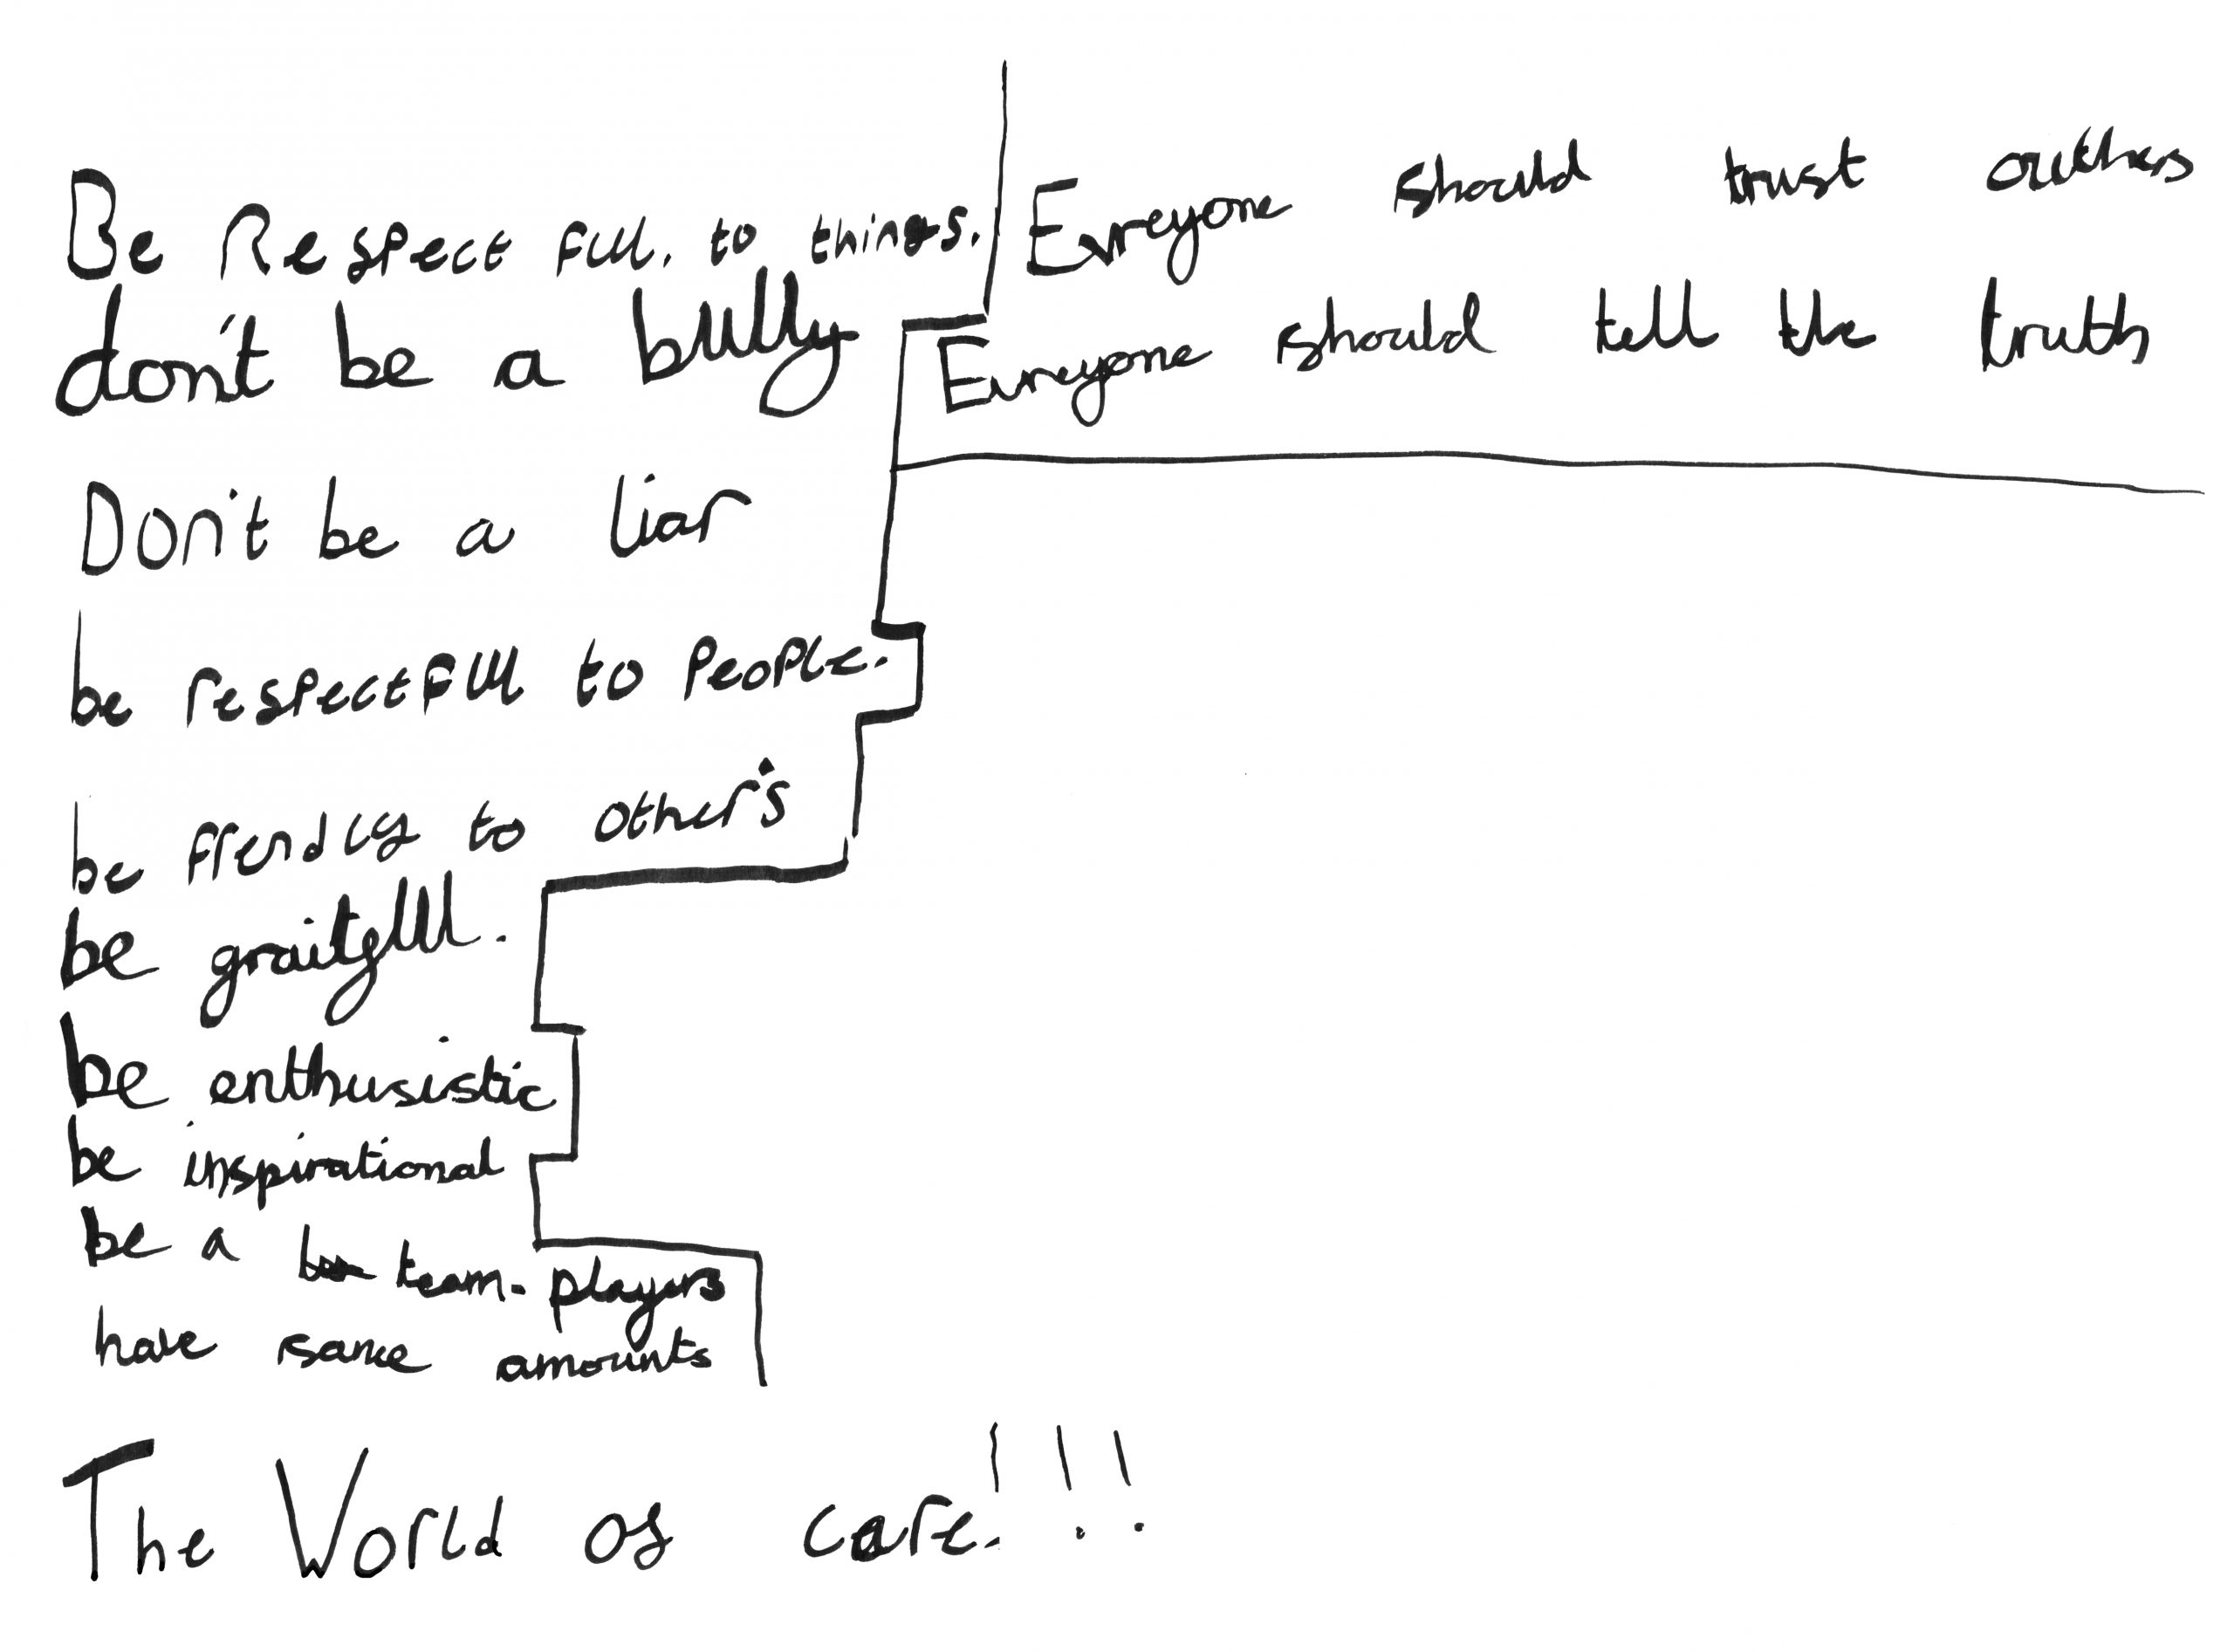 Be Respect full. to things.
don't be a bully
Don't be a liar
be respectfull to People.
be frendly to other's
be graitfull.
be enthusistic
be inspirational
be a team-players
have same amounts
Evreyone should trust outhers
Evreyone should tell the truth
The World of care!!!